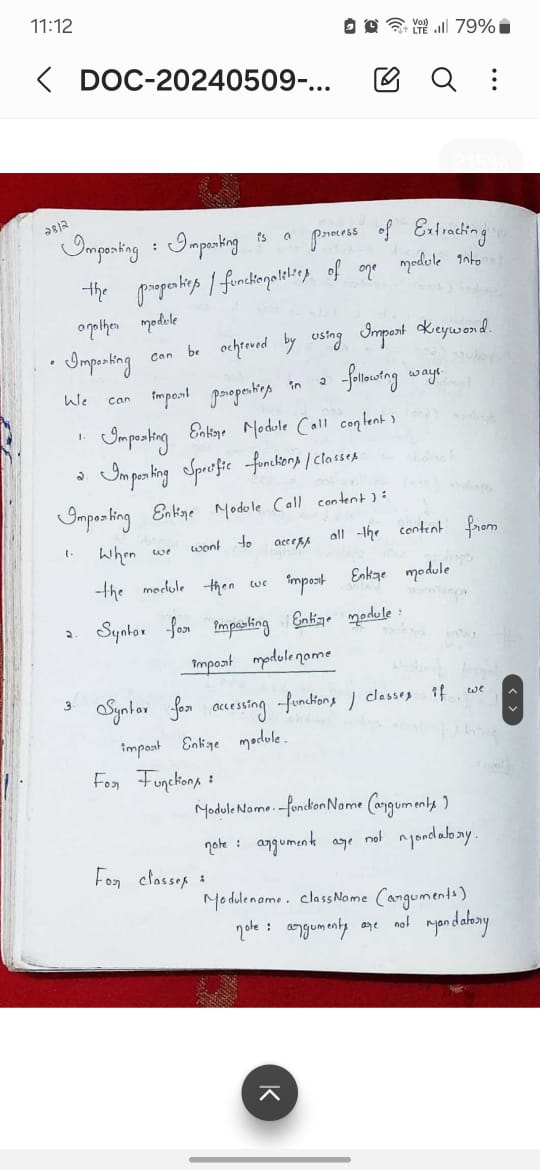 11:12
Vo)) LTE 79%
DOC-20240509-...
28|2
Importing : Importing is a process of Extracting
the properties / functionalities of one module into
another module
• Importing can be achieved by using Import Keyword.
We can import properties in 2 following ways
1. Importing Entire Module (all content)
2. Importing Specific functions / classes
Importing Entire Module (all content) :
1. When we want to access all the content from
the module then we import Entire module
2. Syntax for importing Entire module :
import modulename
3. Syntax for accessing functions / classes if we
import Entire module.
For Functions :
ModuleName.functionName (arguments)
note : arguments are not mandatory.
For classes :
Modulename. className (arguments)
note : arguments are not mandatory